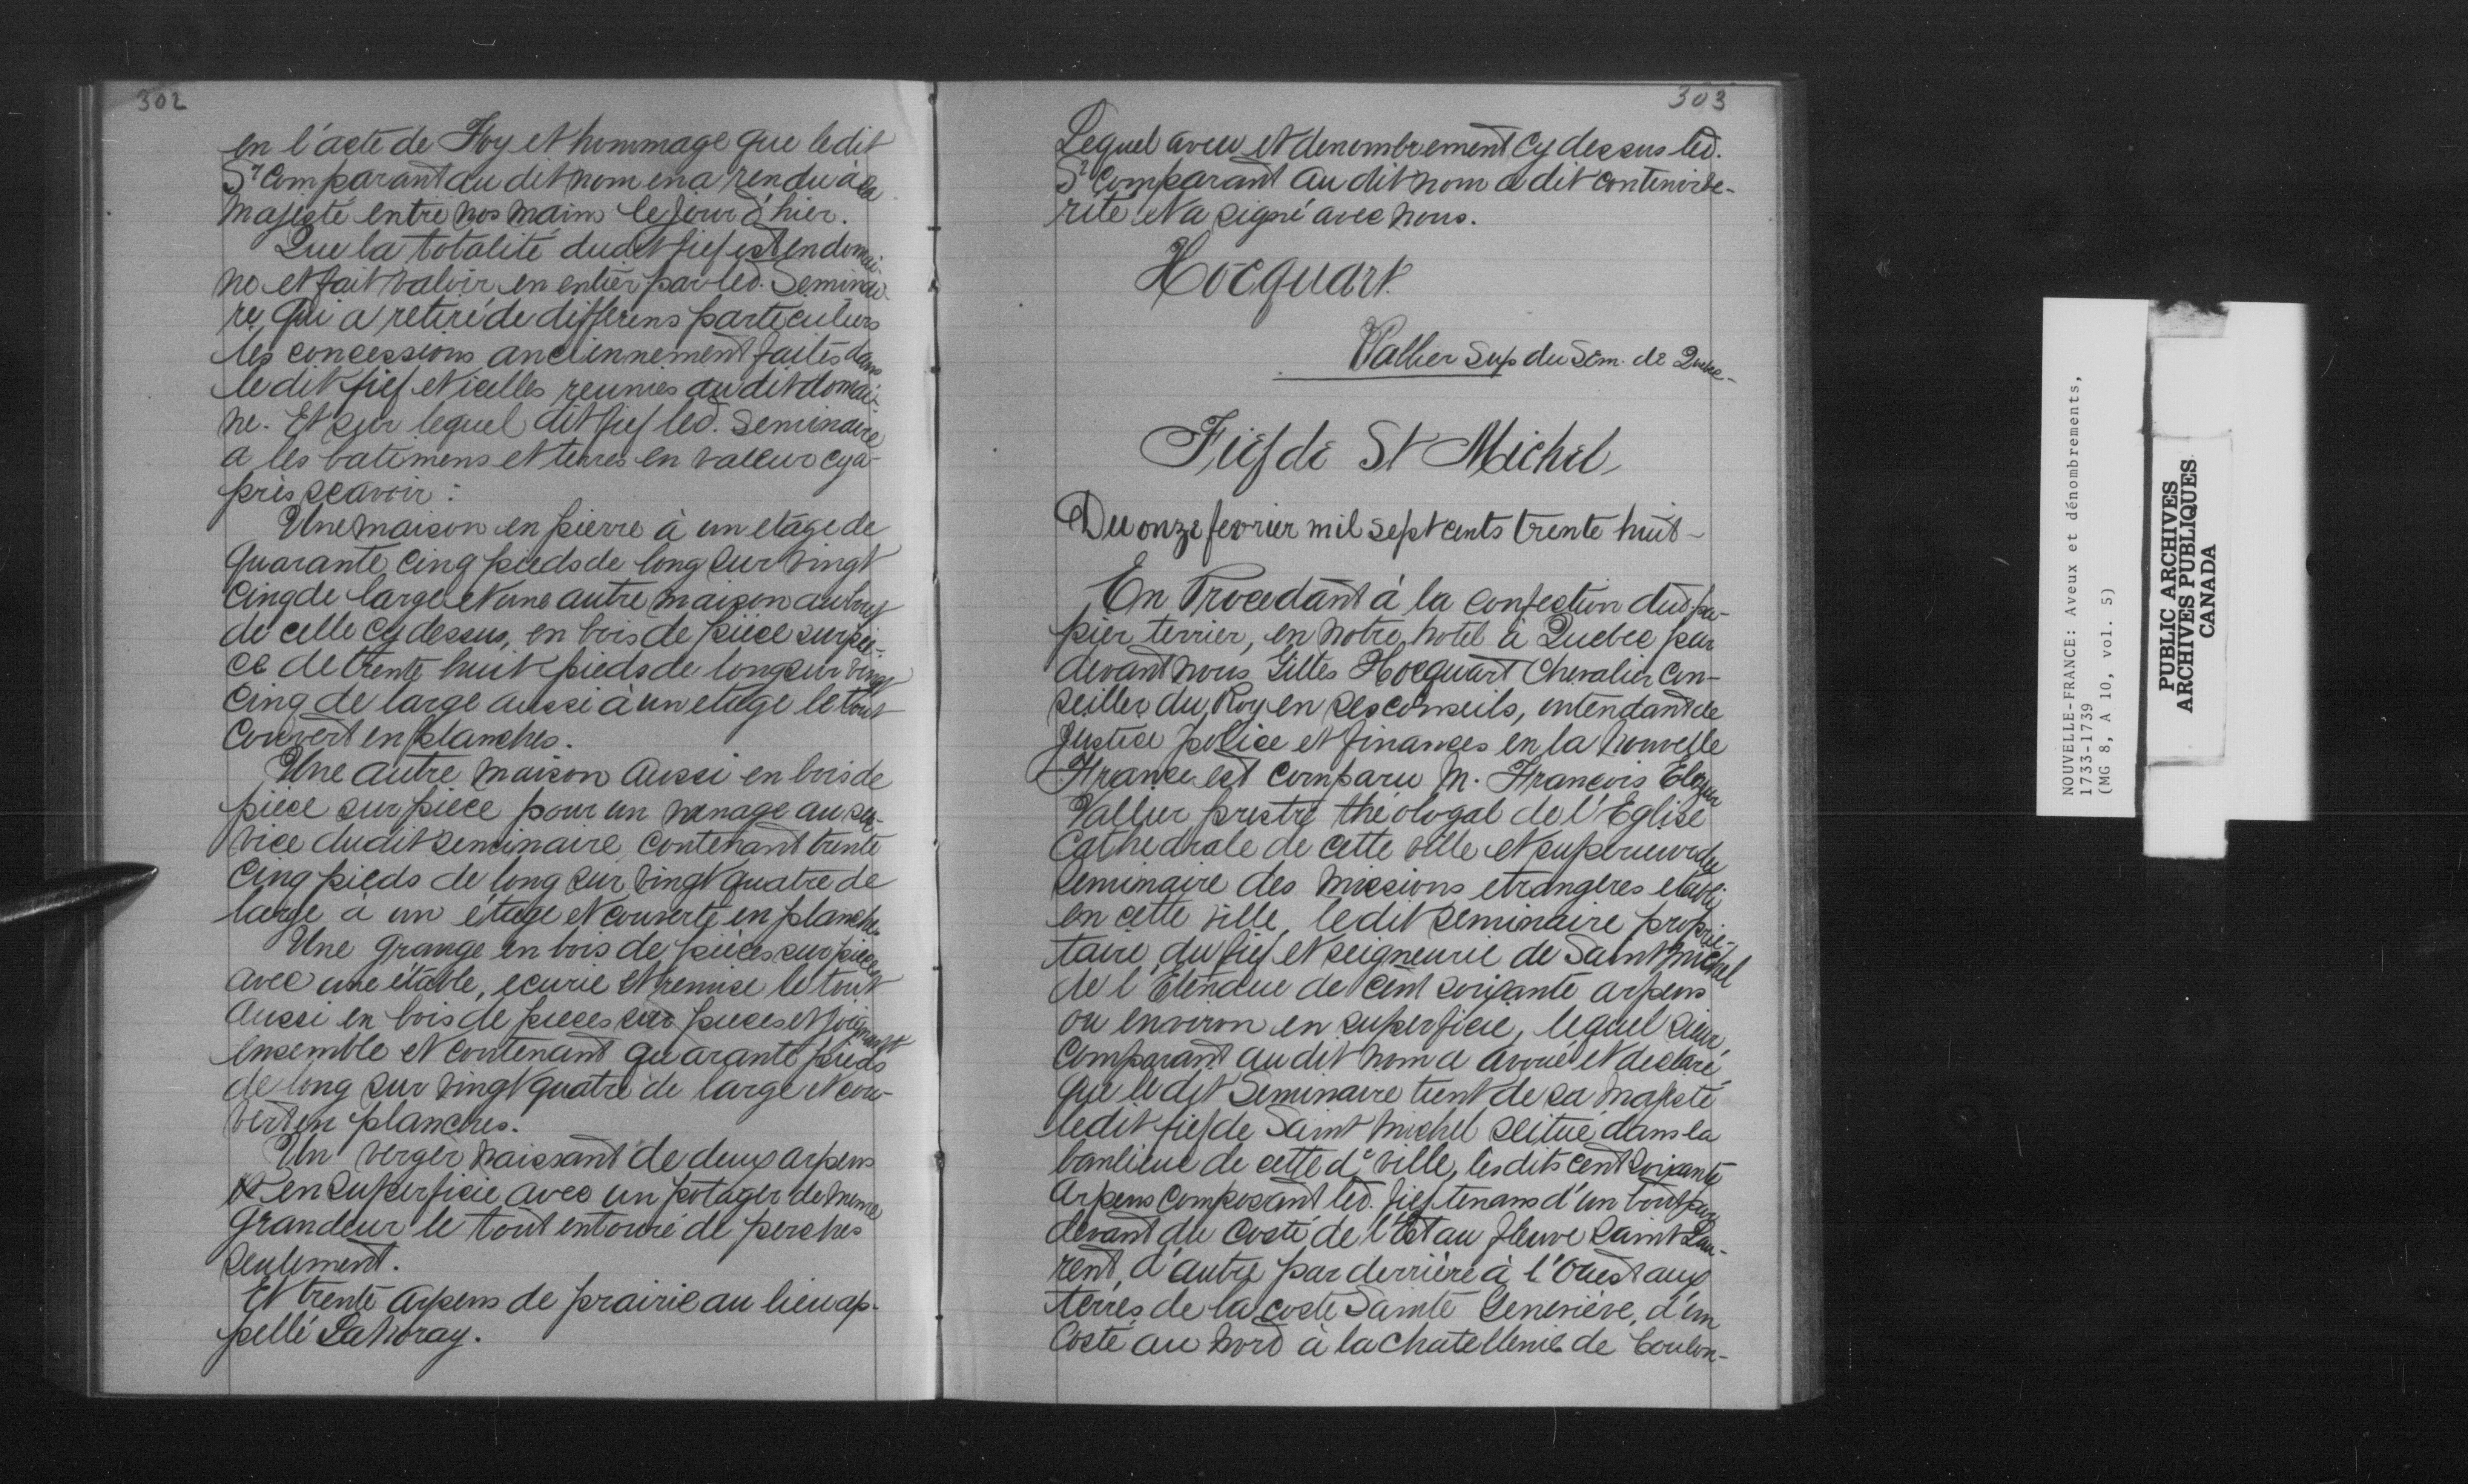 302
en l'acte de Foy et hommage que le dit
Sr Comparant au dit nom en a rendu à sa
Majesté entre nos mains le jour d'hier.
Que la totalité dudit fief est en domai-
ne et fait valoir en entier par led. Seminai-
re, qui a retiré de differens particuliers
les concessions anciennement faites dans
le dit fief et icelles reunies au dit domai-
ne. Et sur lequel dit fief led. Seminaire
a les batimens et terres en valeur cy a-
près scavoir :
Une maison en pierre à un etage de
quarante cinq pieds de long sur vingt
cinq de large et une autre maison au bout
de celle cy dessus, en bois de pièce sur piè-
ce de trente huit pieds de long sur vingt
cinq de large aussi à un etage le tout
couvert en planches.
Une autre maison aussi en bois de
pièce sur pièce pour un menage au ser-
vice dudit seminaire contenant trente
cinq pieds de long sur vingt quatre de
large à un étage et couverte en planches
Une grange en bois de pièces sur pièces
avec une étable, ecurie et remise le tout
aussi en bois de pieces sur pieces et joignant
ensemble et contenant quarante pieds
de long sur vingt quatre de large et cou-
vert en planches.
Un verger naissant de deux arpens
en superficie avec un potager de meme
grandeur le tout entouré de perches
seulement.
Et trente arpens de prairie au lieu ap-
pellé Lahoray.
303
Lequel aveu et denombrement cy dessus led.
Sr Comparant au dit nom a dit contenir ve-
rité et a signé avec nous.
Hocquart
Vallier Sup du Sém. de Quebec-
Fief de St Michel
Du onze fevrier mil sept cents trente huit -
En Procedant à la confection dud. pa-
pier terrier, en notre hotel à Quebec par
devant nous Gilles Hocquart Chevalier Con-
seiller du Roy en ses conseils, intendant de
Justice police et finances en la Nouvelle
France est comparu M. François Elezear
Vallier prestre théologal de l'Eglise
Cathedrale de cette ville et superieur du
seminaire des missions etrangeres etabli
en cette ville, ledit seminaire proprie-
taire du fief et seigneurie de Saint Michel
de l'Etendue de cent soixante arpens
ou environ en superficie, lequel sieur
Comparant au dit nom a avoué et declaré
que le dit Seminaire tient de sa Majesté
ledit fief de Saint Michel scitué dans la
banlieue de cette de ville, les dits cent soixante
arpens composant led. fief tenans d'un bout par
devant du costé de l'Est au fleuve Saint Lau-
rent, d'autre par derrière à l'Ouest aux
terres de la coste Sainte Geneviève, d'un
costé au nord à la chatellenie de Coulon-
NOUVELLE-FRANCE: Aveux et dénombrements,
1733-1739
(MG 8, A 10, vol. 5)
PUBLIC ARCHIVES
ARCHIVES PUBLIQUES
CANADA